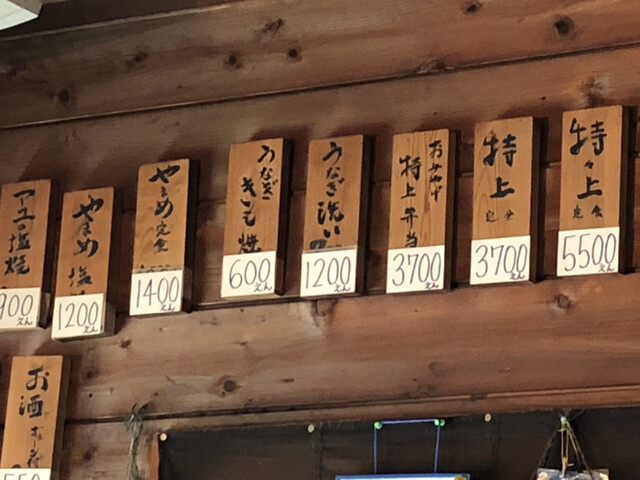 特々上
定食
5500
えん
特上
定食
3700
えん
おみやげ
特上弁当
3700
えん
うなぎ洗い
1200
えん
うなぎ
きも焼
600
えん
やまめ
定食
1400
えん
やまめ
塩
1200
えん
アユの塩焼
900
えん
お酒
550